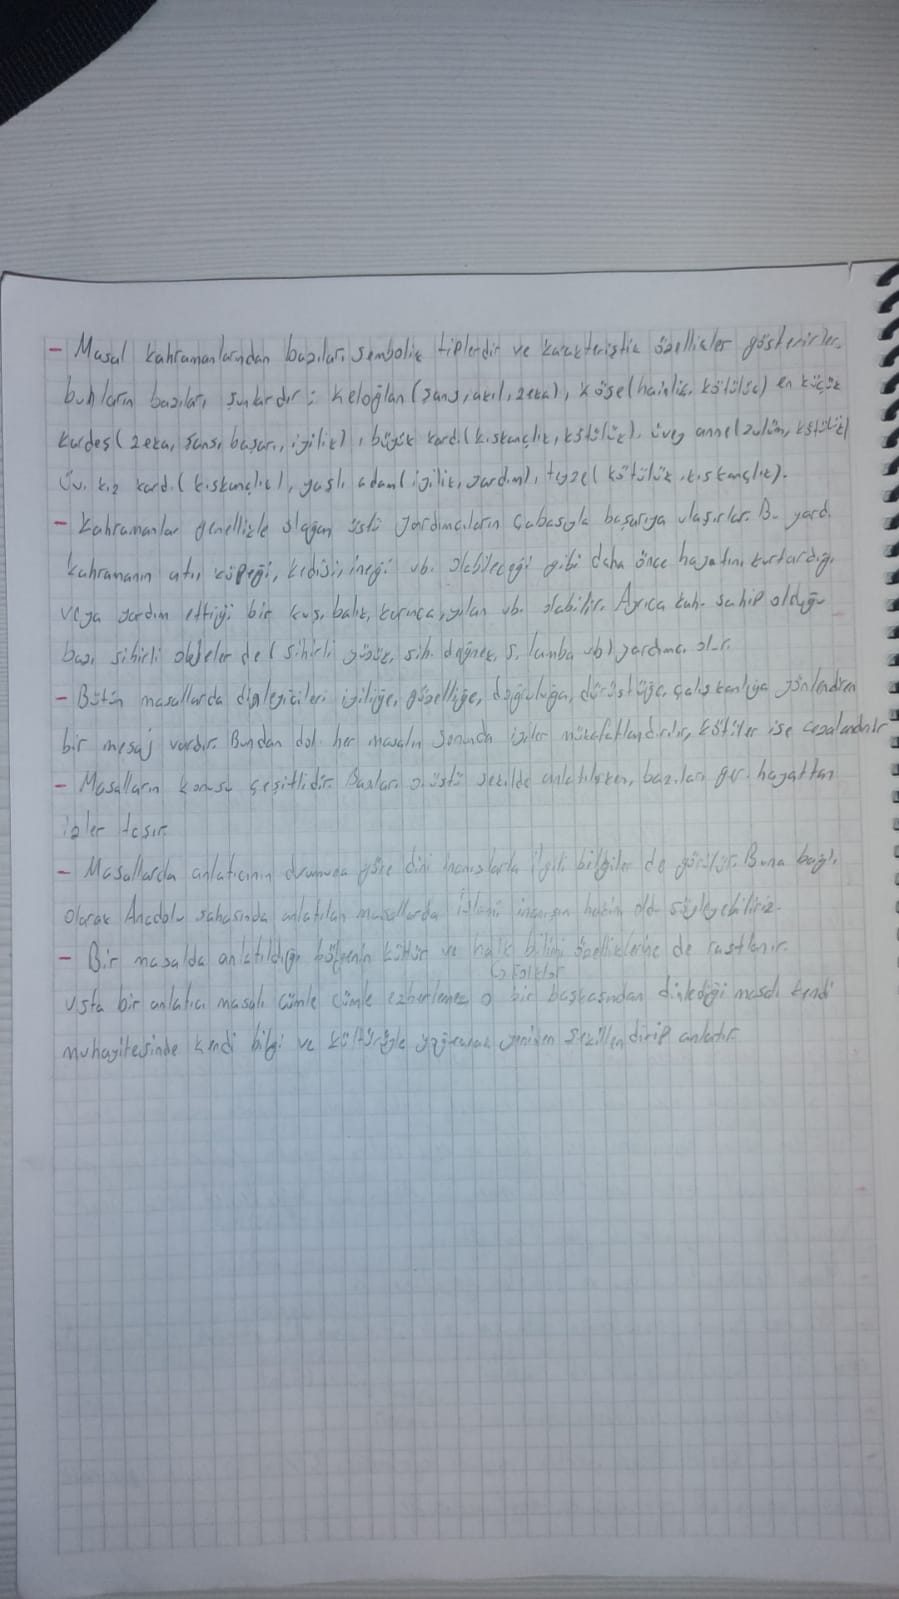 - Masal kahramanlarından bazıları sembolik tiplerdir ve karakteristik özellikler gösterirler.
bunların bazıları şunlardır: Keloğlan (şans, akıl, zeka), köse (hainlik, kötülük) en küçük
kardeş (zeka, şans, başarı, iyilik), büyük kard. (kıskançlık, kötülük), üvey anne (zulüm, kötülük)
Üv. kız kard. (kıskançlık), yaşlı adam (iyilik, yardım), teyze (kötülük, kıskançlık).
- Kahramanlar genellikle olağan üstü yardımcıların çabasıyla başarıya ulaşırlar. Bu yard.
kahramanın atı, köpeği, kedisi, ineği vb. olabileceği gibi daha önce hayatını kurtardığı
veya yardım ettiği bir kuş, balık, karınca, yılan vb. olabilir. Ayrıca kah. sahip olduğu
bazı sihirli objeler de (sihirli yüzük, sih. değnek, s. lamba vb) yardımcı olur.
- Bütün masallarda dinleyicileri iyiliğe, güzelliğe, doğruluğa, dürüstlüğe, çalışkanlığa yönlendiren
bir mesaj vardır. Bundan dol. her masalın sonunda iyiler mükafatlandırılır, kötüler ise cezalandırılır
- Masalların konusu çeşitlidir. Bazıları o.üstü şekilde anlatılırken, bazıları ger. hayattan
izler taşır.
- Masallarda anlatıcının durumuna göre dini inanışlarla ilgili bilgiler de görülür. Buna bağlı
olarak Anadolu sahasında anlatılan masallarda İslami inancın hakim old. söyleyebiliriz.
- Bir masalda anlatıldığı bölgenin kültür ve halk bilimi özelliklerine de rastlanır.
↳ Folklor
usta bir anlatıcı masalı cümle cümle ezberlemez o bir başkasından dinlediği masalı kendi
muhayilesinde kendi bilgi ve kültürüyle yoğurarak yeniden şekillendirip anlatır.